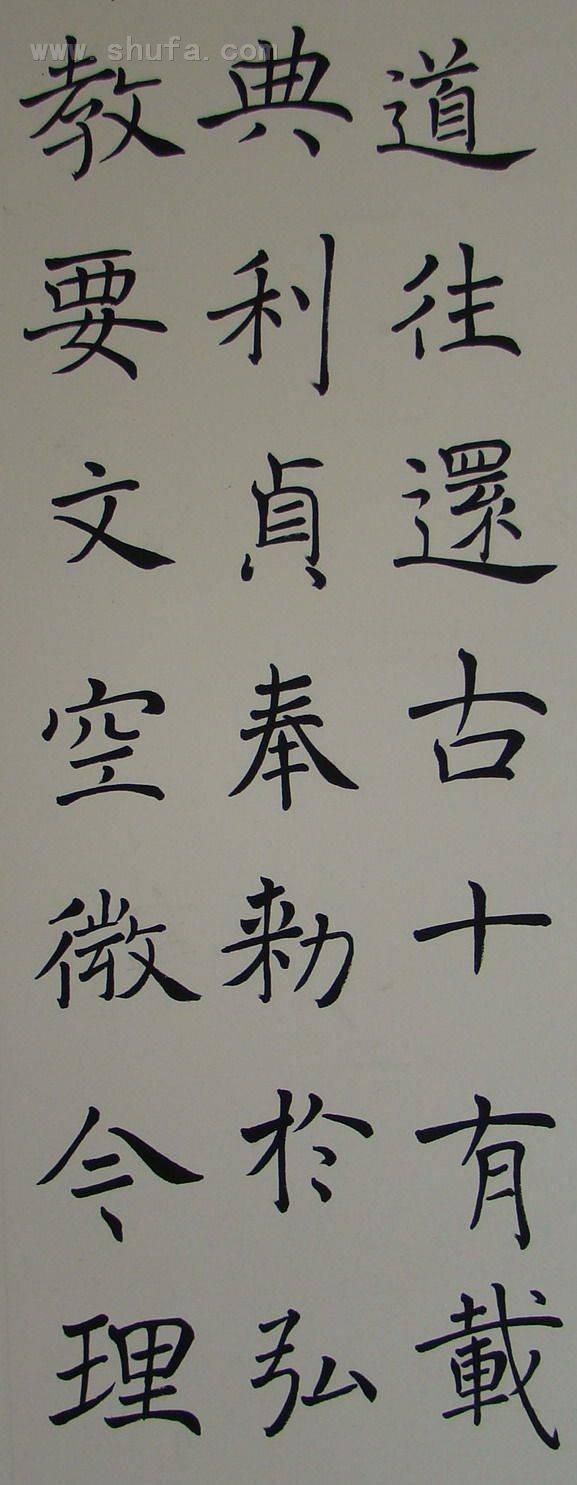 www.shufa.com
道往還古十有載
典利貞奉勅於弘
教要文空微令理